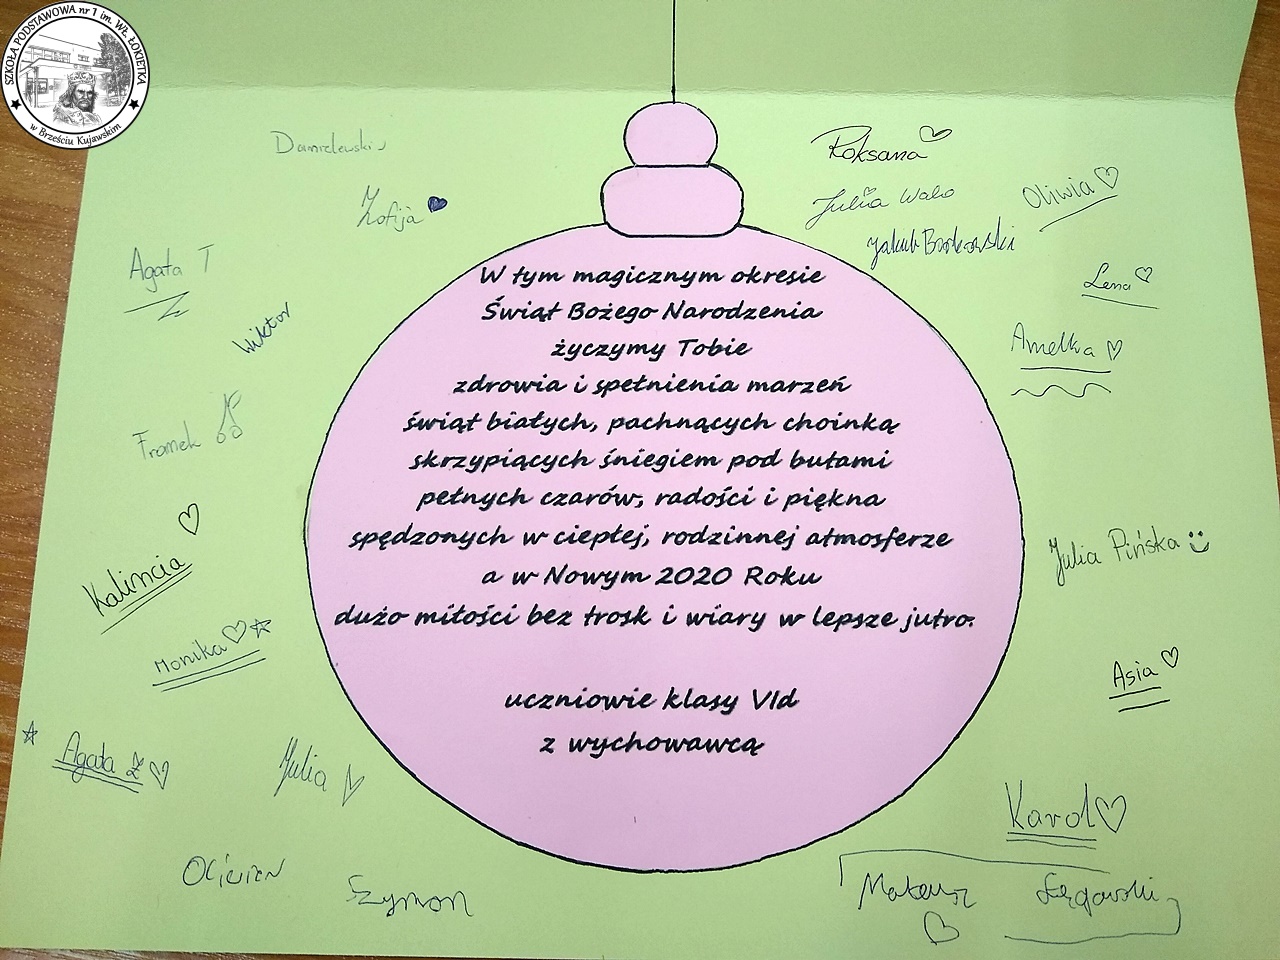 SZKOŁA PODSTAWOWA nr 1 im. WŁ. ŁOKIETKA
w Brześciu Kujawskim
Roksana
Zofija
Julia
Oliwia
Jakub Borkowski
Agata T
Lena
Wiktor
Amelka
Franek
Kalincia
Julia Pińska
Monika
Asia
Agata Z
Julia
Karol
Oliwier
Szymon
Mateusz
W tym magicznym okresie
Świąt Bożego Narodzenia
życzymy Tobie
zdrowia i spełnienia marzeń
świąt białych, pachnących choinką
skrzypiących śniegiem pod butami
pełnych czarów, radości i piękna
spędzonych w ciepłej, rodzinnej atmosferze
a w Nowym 2020 Roku
dużo miłości bez trosk i wiary w lepsze jutro.
uczniowie klasy VId
z wychowawcą